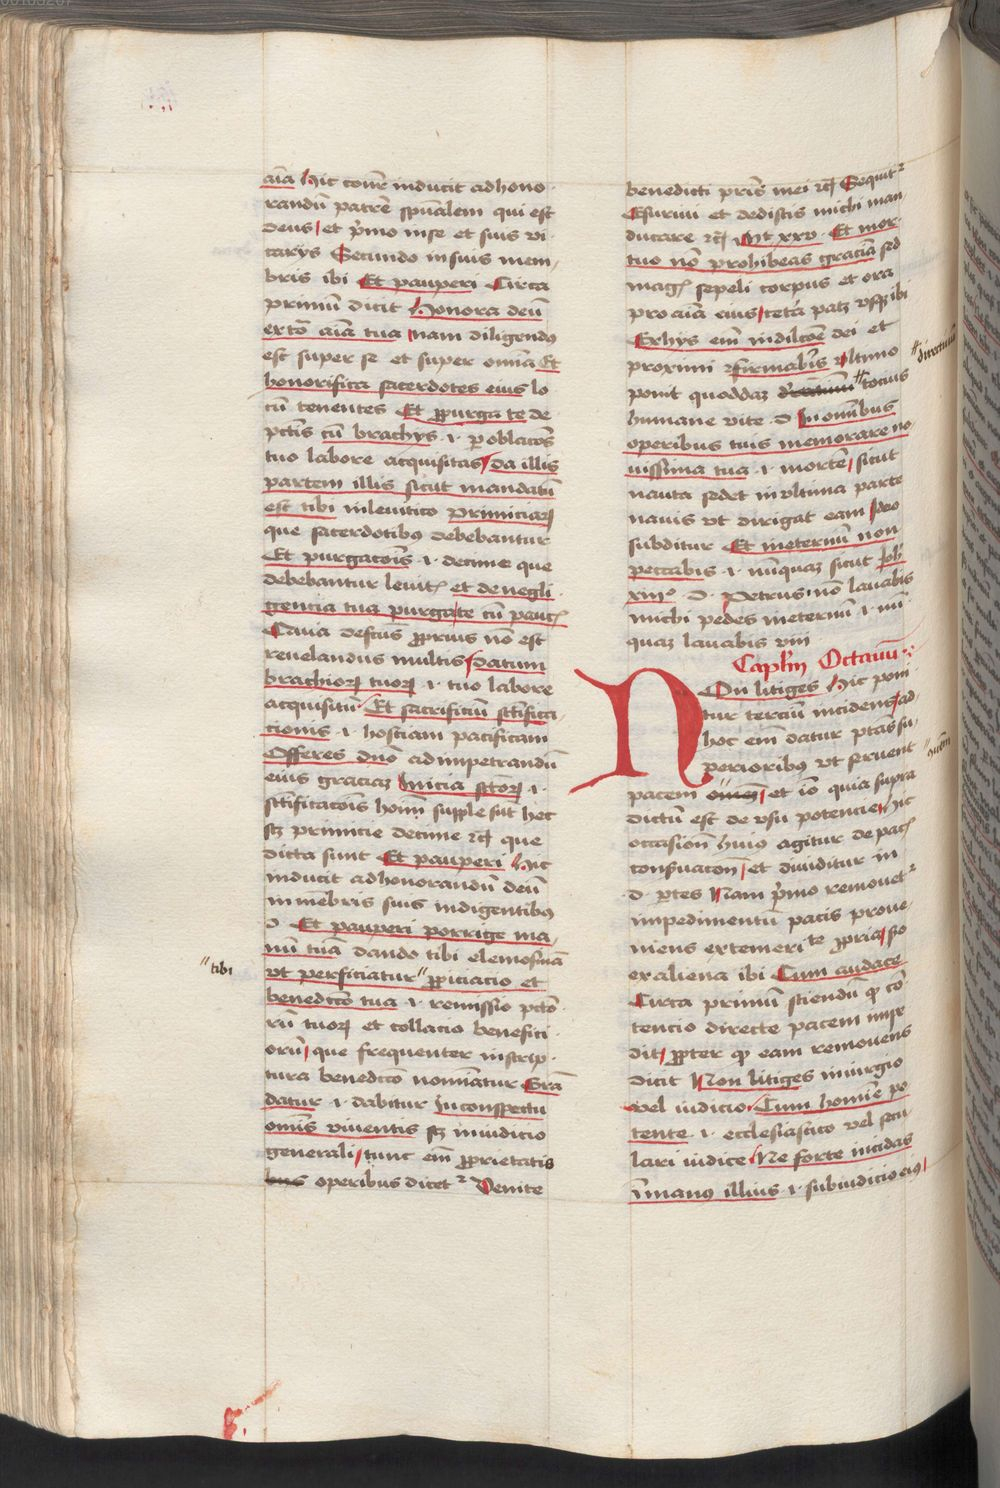 aīa Hic conīre inducit ad hono
randū patrē spūalem qui est
deus et p̄mo in se et suis vi
carys Secundo in suis mem
bris ibi Et pauperi Circa
primū dicit Honora deū
ex tō aīa tua nam diligendus
est super se et super omīa Et
honorifica sacerdotes eius lo
cū tenentes Et ꝓpurga te de
pctīs cū brachys .i. p oblacōes
tuo labore acquisitas da illis
partem illis sicut mandatū
est tibi in levitico primiciaꝝ
que sacerdotibus debebantur
Et purgacōis .i. decime que
debebantur levitis et de negli
gencia tua purga te cū paucis
Causa defectus ꝓprius nō est
revelandus multis datum
brachioꝝ tuoꝝ .i. tuo labore
acquisitū Et sacrificiū sctīfica
cionis .i. hostiam pacificam
Offeres dnō ad impetrandū
eius graciaz Inicia sctōꝝ .i.
sctīficacōis hoīm supple sūt hec
scz primicie decime ⁊cꝫ que
dicta sunt Et pauperi Hic
inducit ad honorandū deū
in mēbris suis indigentibus
D Et pauperi porrige ma
nū tuā dando tibi elemosinā
tibi
vt perficiatur ꝓpiciacio et
benedictō tua .i. remissio pctō
rū tuoꝝ et collacio benefici
orū que frequenter in scrip
tura benedictō nomīatur Grā
datur .i. dabitur In conspectu
omīs viventis scz in iudicio
generali tunc eīm ꝓprietatis
bus operibus dicetur Venite
benedicti prīs mei ⁊cꝫ Sequitur
Esurivi et dedistis michi man
ducare ⁊cꝫ Mt xxv. Et mor
tuo nō prohibeas graciā sed
magis sepeli corpus et ora
pro aīa eius cetā patꝫ vsqꝫ ibi
Ex hys eīm in dilcōē dei et
proximi ꝯfirmaberis Vltimo
ponit quoddaz totius
directivū
humane vite .D. In omībus
operibus tuis memorare no
vissima tua .i. mortē sicut
nauta sedet in vltima parte
navis vt dirigat eam ideo
subditur Et in eternū non
peccabis .i. nūquaz sicut Joh
xiiiº .D. Petrus nō lavabis
michi pedes in eternū .i. nū
quaz lavabis viii
Caplm Octavū
Non litiges Hic poni
tur terciū incidens ad
hoc eīm datur ptās su
perioribus vt servent
pacem et iō quia supra
dictū est de vsu potencie Hic
occasionē huius agitur de pacis
conservacōne et dividitur in
.D. ptes Nam p̄mo removetur
impedimentū pacis prove
niens ex temeritate ꝓpria So
ex aliena ibi Cum audace
Circa primū sciendū ꝙ cō
tencio directe pacem impe
dit ꝓpter ꝙ eam removens
dicit Non litiges in iurgio
vel iudicio Cum homīe po
tente .i. ecclesiastico vel secu
lari iudice Ne forte incidas
in manus illius .i. sub iudicio eius